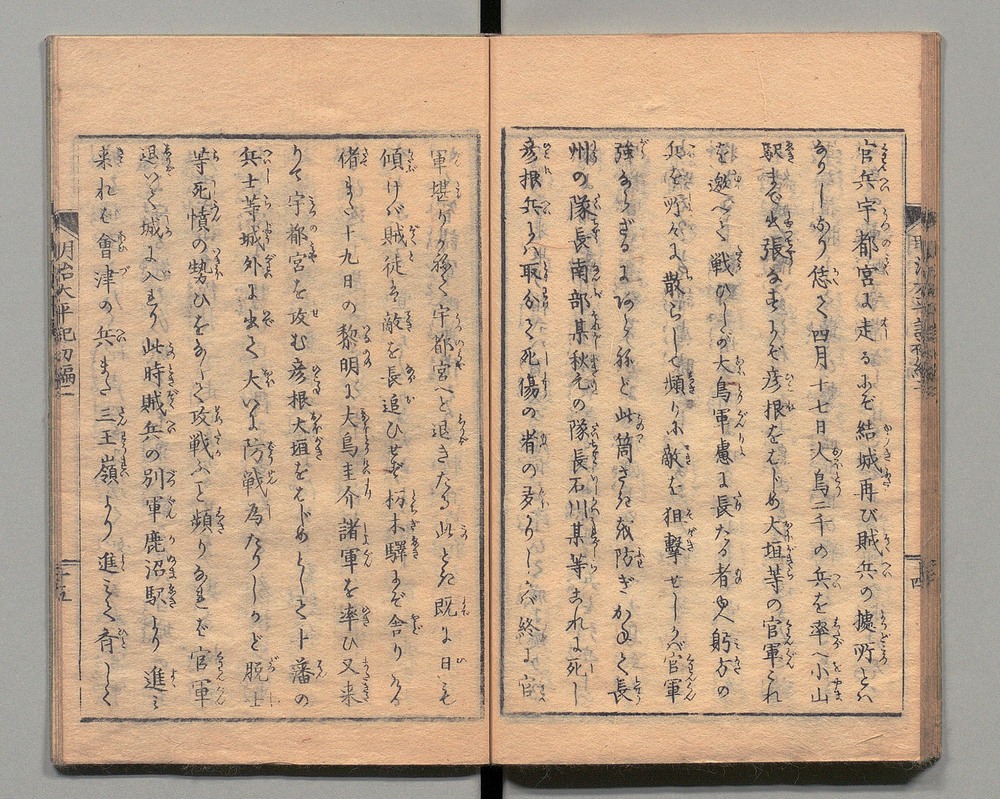 官兵宇都宮に走るにぞ結城再び賊兵の據所とは
なりしなり恁て四月十七日大鳥二千の兵を率へ小山
駅まで出張なすよりぞ彦根をはじめ大垣等の官軍これ
を邀へて戦ひしが大鳥軍慮に長たる者也躬方の
兵を所々に散らして頻りに敵を狙撃せしかバ官軍
強からざるにあらねど此筒さきを防ぎかねて長
州の隊長南部某秋元の隊長石川某等これに死し
彦根兵ハ取分て死傷の者の多かりしかバ終に官
軍堪りかねて宇都宮へと退きたる此とき既に日も
傾けバ賊徒ハ敵を長追ひせず栃木驛にぞ舎りける
偖また十九日の黎明に大鳥圭介諸軍を率ひ又来
りて宇都宮を攻む彦根大垣をはじめとして卜藩の
兵士等城外に出て大いに防戦為たりしかど脱士
等死憤の勢ひをなして攻戦ふこと頻りなれバ官軍
退いて城に入たり此時賊兵の別軍鹿沼駅より進ミ
来れバ會津の兵また三王嶺より進ミて斉しく
明治太平記初編二
十五
十四